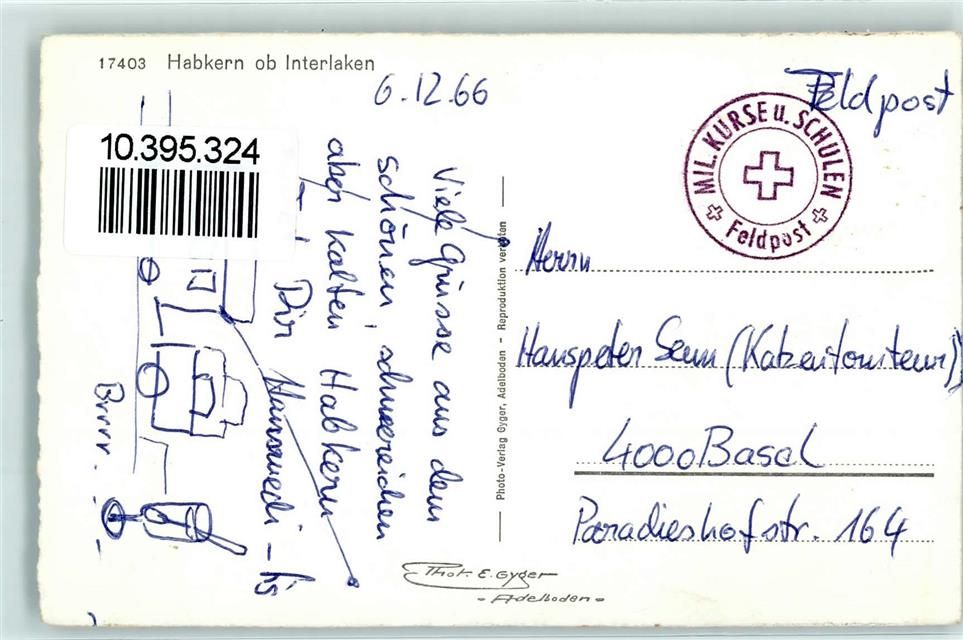 17403 Habkern ob Interlaken
6.12.66
Feldpost
MIL. KURSE u. SCHULEN
Feldpost
10.395.324
Viele Grüsse aus dem
schönen, schneereichen
aber kalten Habkern
Dir
Brrrr.
Photo-Verlag Gyger, Adelboden - Reproduktion verboten
Herrn
Hanspeter Senn (Katzentonsteur)
4000 Basel
Paradieshofstr. 164
Phot. E. Gyger
- Adelboden -